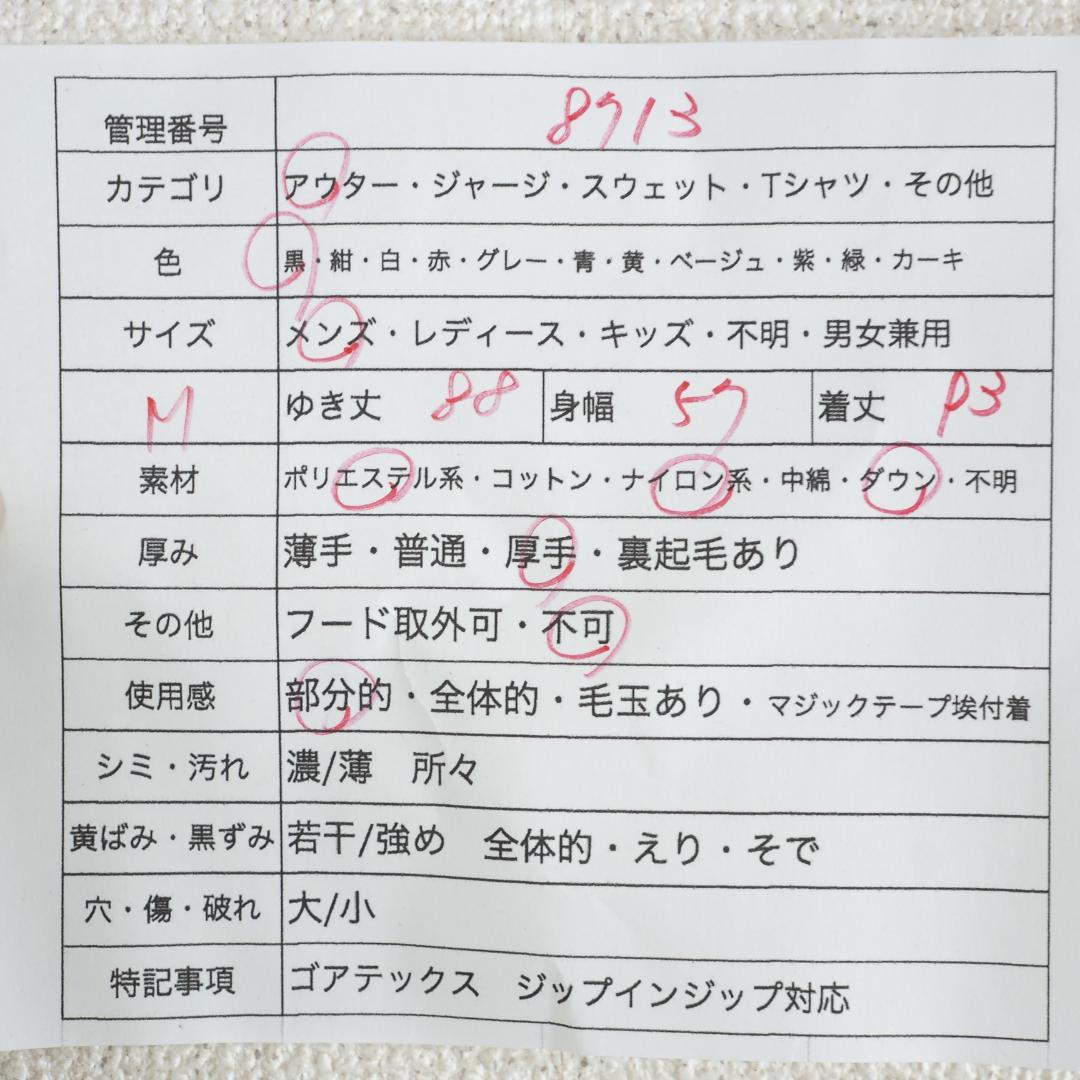 管理番号 8913
カテゴリ アウター・ジャージ・スウェット・Tシャツ・その他
色 黒・紺・白・赤・グレー・青・黄・ベージュ・紫・緑・カーキ
サイズ メンズ・レディース・キッズ・不明・男女兼用
M ゆき丈 88 身幅 57 着丈 93
素材 ポリエステル系・コットン・ナイロン系・中綿・ダウン・不明
厚み 薄手・普通・厚手・裏起毛あり
その他 フード取外可・不可
使用感 部分的・全体的・毛玉あり・マジックテープ埃付着
シミ・汚れ 濃/薄 所々
黄ばみ・黒ずみ 若干/強め 全体的・えり・そで
穴・傷・破れ 大/小
特記事項 ゴアテックス ジップインジップ対応